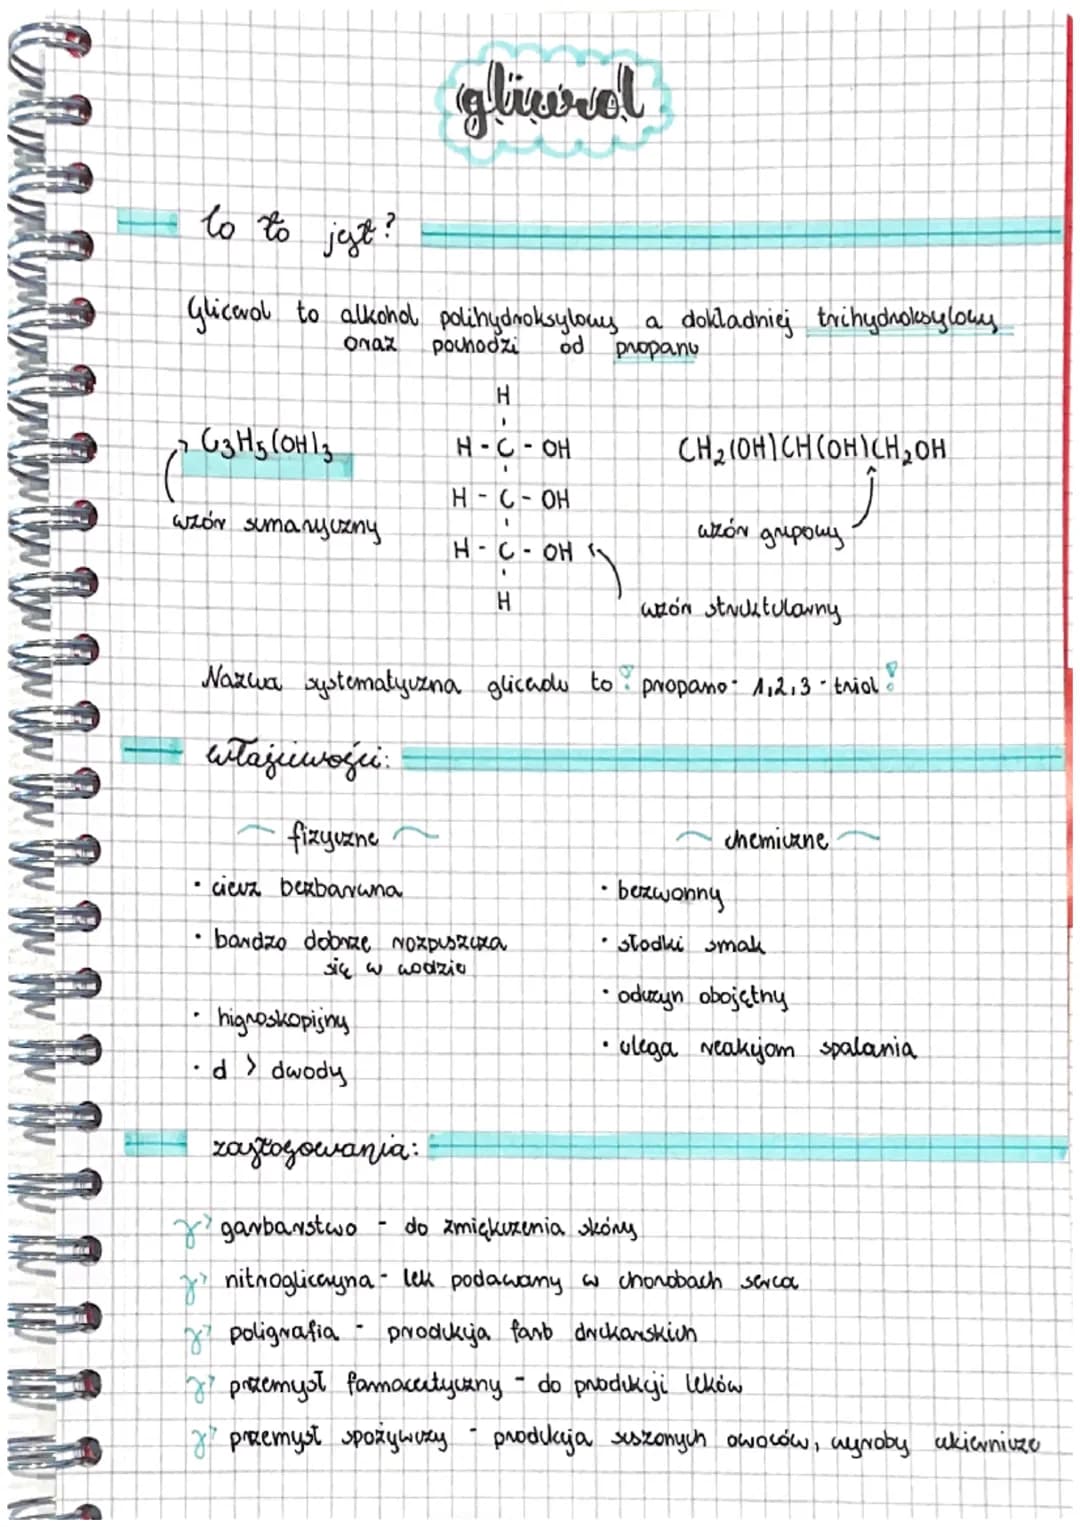 glicerol
Co to jest?
Glicerol to alkohol polihydroksylowy a dokładniej trihydroksylowy
oraz pochodzi od propanu
H
C3H5(OH)3 H - C - OH CH2(OH)CH(OH)CH2OH
H - C - OH
wzór sumaryczny wzór grupowy
H - C - OH
H
wzór strukturalny
Nazwa systematyczna glicerolu to: propano - 1,2,3 - triol!
właściwości:
fizyczne chemiczne
• ciecz bezbarwna • bezwonny
• bardzo dobrze rozpuszcza • słodki smak
się w wodzie
• odczyn obojętny
• higroskopijny
• ulega reakcjom spalania
• d > dwody
zastosowania:
garbarstwo - do zmiękczenia skóry
nitrogliceryna - lek podawany w chorobach serca
poligrafia - produkcja farb drukarskich
przemysł farmaceutyczny - do produkcji leków
przemysł spożywczy - produkcja suszonych owoców, wyroby cukiernicze